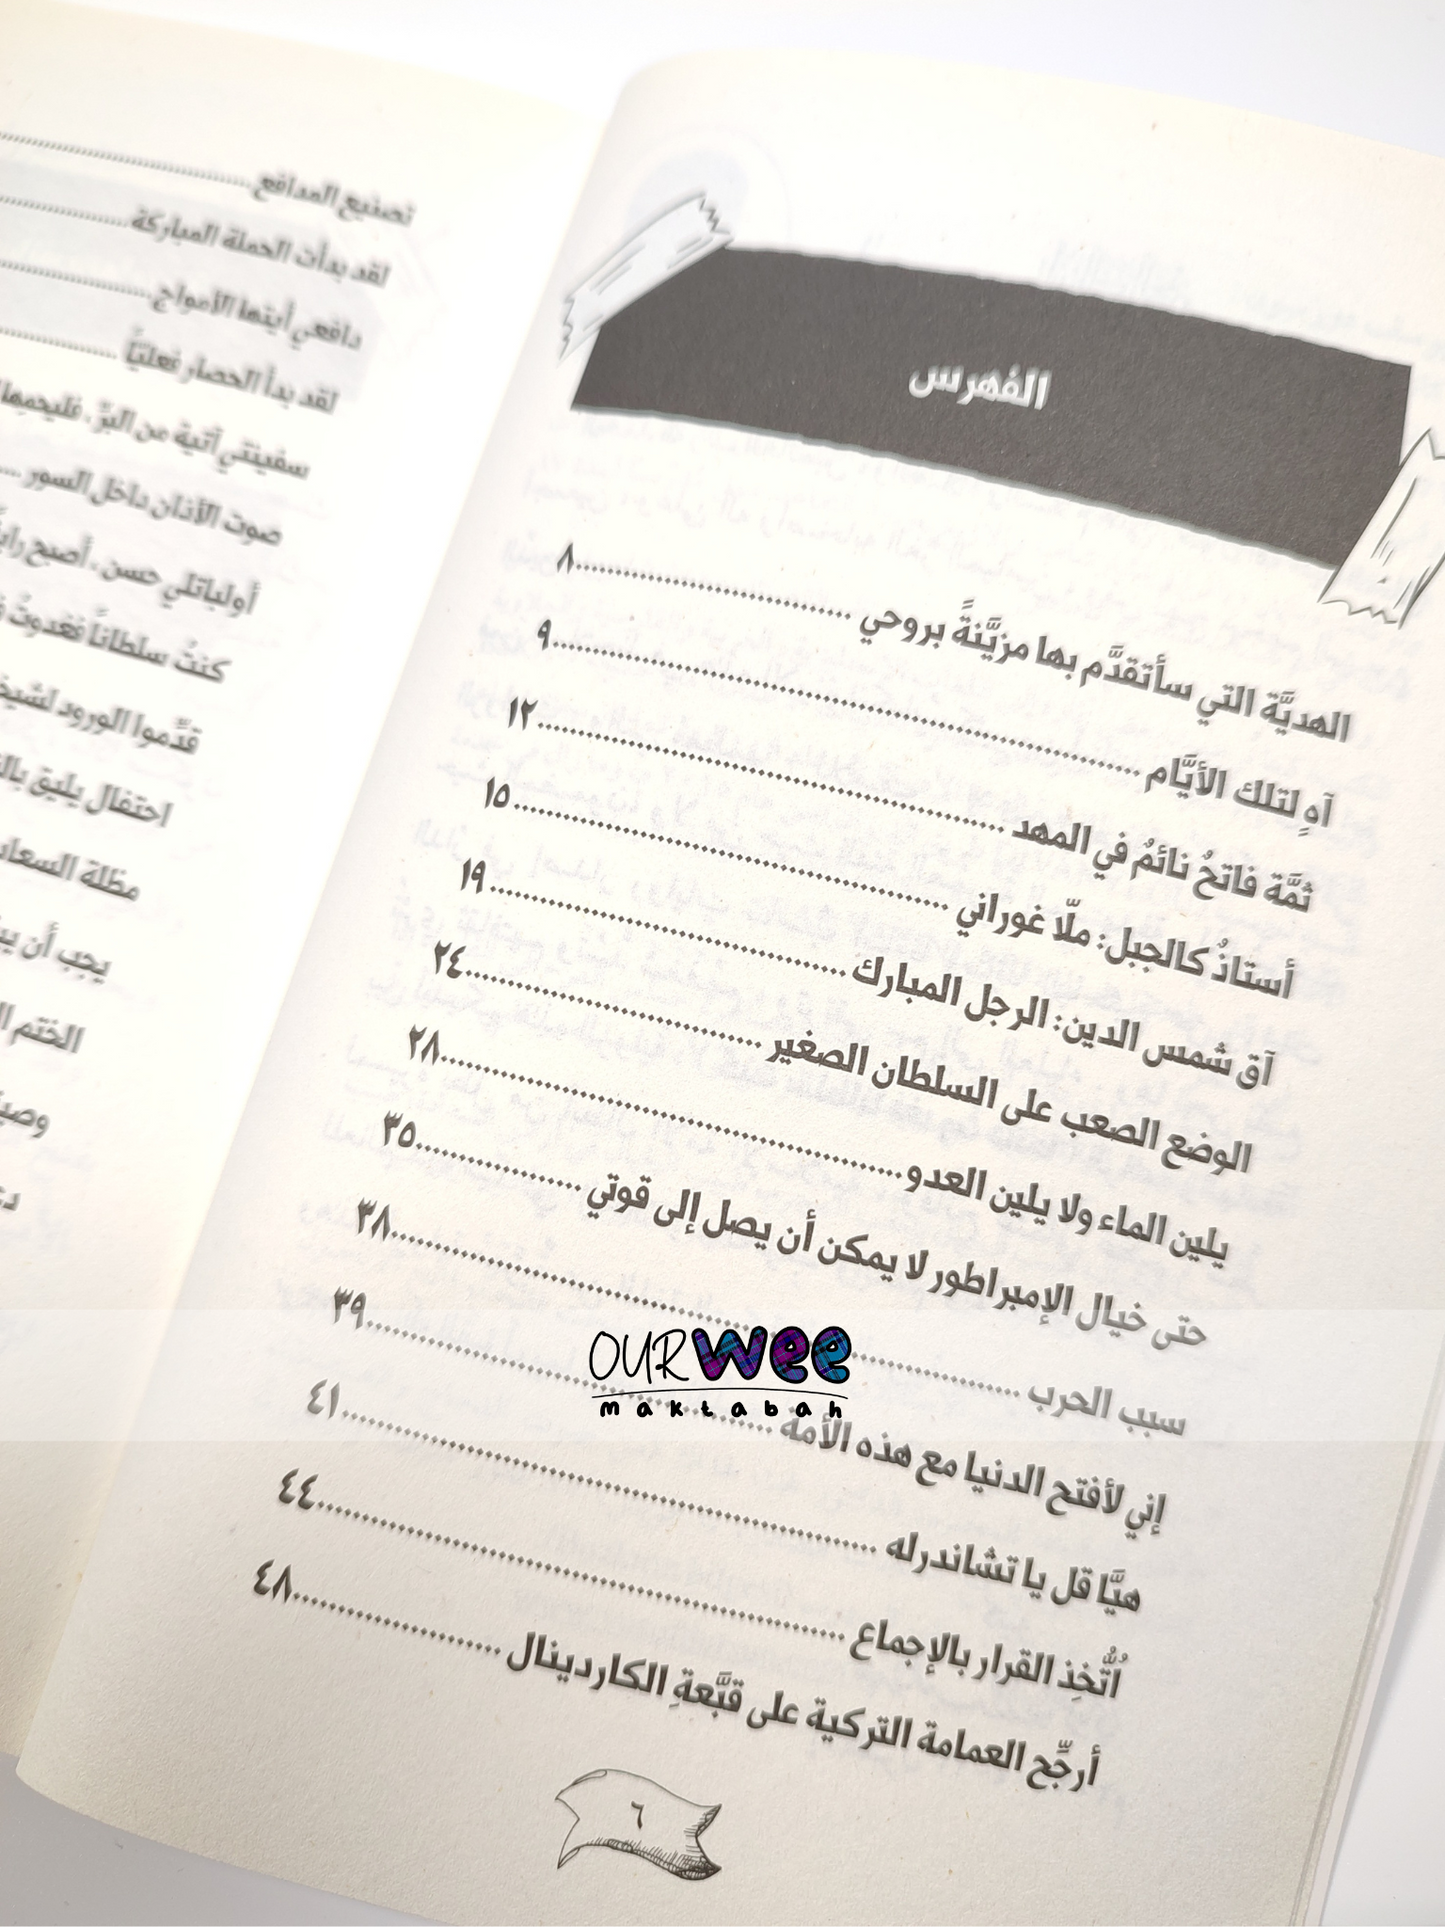 الفهرس
الهديَّة التي سأتقدَّم بها مزيَّنةً بروحي ٨
آهٍ لتلك الأيَّام ٩
ثمَّة فاتحٌ نائمٌ في المهد ١٢
أستاذٌ كالجبل: ملّا غوراني ١٥
آق شمس الدين: الرجل المبارك ١٩
الوضع الصعب على السلطان الصغير ٢٤
يلين الماء ولا يلين العدو ٢٨
حتى خيال الإمبراطور لا يمكن أن يصل إلى قوتي ٣٥
سبب الحرب ٣٨
إني لأفتح الدنيا مع هذه الأمة ٣٩
هيَّا قل يا تشاندرله ٤١
اُتُّخِذ القرار بالإجماع ٤٤
أرجِّح العمامة التركية على قبَّعةِ الكاردينال ٤٨
٦
تصنيع المدافع
لقد بدأت الحملة المباركة
دافعي أيتها الأمواج
لقد بدأ الحصار فعليًّا
سفينتي آتية من البرِّ، فليحمها
صوت الأذان داخل السور
أولباتلي حسن، أصبح
كنتُ سلطاناً فغدوتُ
قدِّموا الورود
احتفال يليق
مظلة
يجب أن
الختم
OURWEE
maktabah